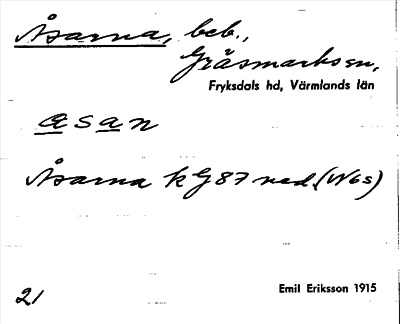 Åsarna, beb.,
Gräsmarks sn,
Fryksdals hd, Värmlands län
asan
Åsarna k G 87 ned. (W6s)
21
Emil Eriksson 1915